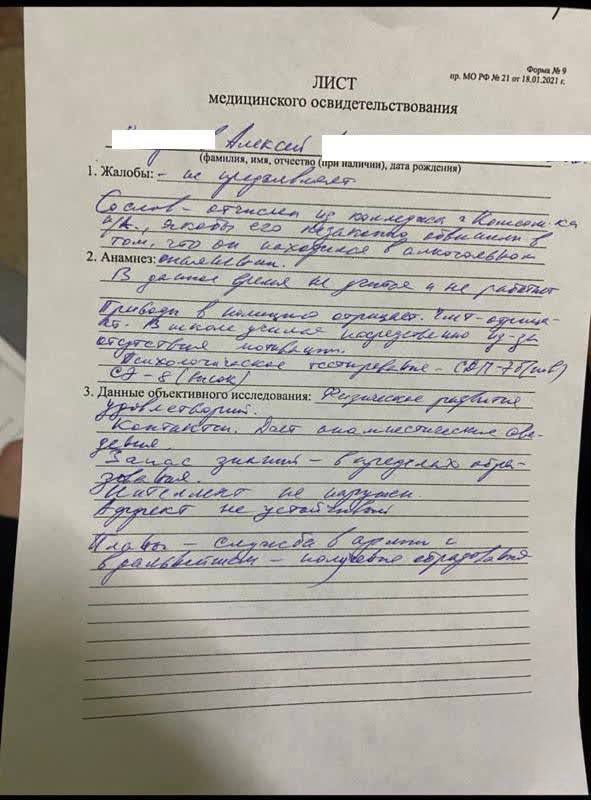 Форма № 9
пр. МО РФ № 21 от 18.01.2021 г.
ЛИСТ
медицинского освидетельствования
Алексей
(фамилия, имя, отчество (при наличии), дата рождения)
1. Жалобы: - не предъявляет
Со слов - отчислен из колледжа г.
якобы его незаконно обвинили в
том, что он находился в алкогольном
2. Анамнез: опьянении.
В данное время не учится и не работает
Приводы в полицию отрицает. ЧМТ - отрица-
ет. В школе учился посредственно из-за
отсутствия мотивации.
Психологическое тестирование -
СЭ - 8 (высок)
3. Данные объективного исследования: Физическое развитие
удовлетворит.
Контактен. Дает анамнестические све-
дения.
Запас знаний - в пределах обра-
зования.
Интеллект не нарушен.
Аффект не устойчивый
Планы - служба в армии и
в дальнейшем - получение образования